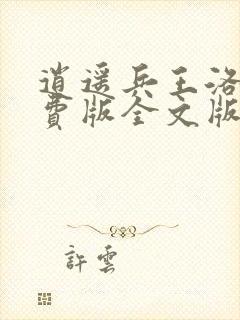 逍遥兵王洛
費版全文版
許雲